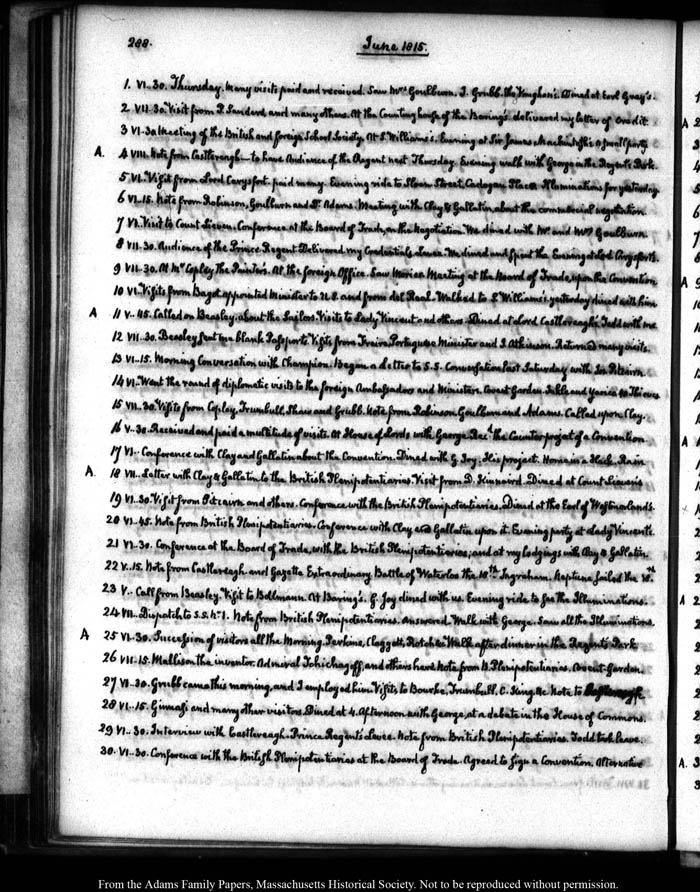 288.
June 1815.
1. VI..30. Thursday. Many visits paid and received. Saw Mrs Goulburn. J. Grubb. the Vaughan's. Dined at Earl Gray's.
2 VII.30. Visit from P. Sanders, and many others. At the Counting house of the Barings. delivered my letter of Credit.
3 VI..30 Meeting of the British and foreign School Society. At S. Williams's. Evening at Sir James Mackintosh's a small party
A. 4 VIII. Note from Castlereagh—to have Audience of the Regent next Thursday. Evening walk with George in the Regent's Park.
5 VI.. Visit from Lord Carysfort. paid many. Evening ride to Sloan Street, Cadogan Place. Illuminations for yesterday
6 VI..15. Note from Robinson, Goulburn and Dr Adams. Meeting with Clay & Gallatin, about the commercial negotiation
7 VI.. Visit to Count Lieven. Conference at the Board of Trade, on the Negotiation. We dined with Mr and Mrs Goulburn.
8 VII..30. Audience of the Prince Regent. Delivered my Credentials. Levee. We dined and spent the Evening at Lord Carysfort's.
9 VII..30. At Mr Copley the Painter's. At the foreign Office. Saw Morier. Meeting at the Board of Trade, upon the Convention
10 VI.. Visits from Bagot appointed Minister to U.S. and from del Real. Walked to S. Williams's. yesterday dined with him
A 11 V..45. Called on Beasley. about the Sailors. Visits to Lady Vincent and others. Dined at Lord Castlereagh's. Todd with me.
12 VII..30. Beasley sent me blank Passports. Visits from Freire Portuguese Minister and J. Atkinson. Returned many visits.
13 VI..15. Morning Conversation with Champion. Began a letter to S.S. Conversation last Saturday with Jos. Pitcairn
14 VI.. Went the round of diplomatic visits to the foreign Ambassadors and Ministers. Covent Garden. Inkle and Yarico 40 Thieves
15 VII..30. Visits from Copley, Trumbull, Shaw and Grubb. Note from Robinson, Goulburn and Adams. Called upon Clay.
16 V..30. Received and paid a multitude of visits. At House of Lords with George. Recd the Counter projet of a Convention
17 VI.. Conference with Clay and Gallatin about the Convention. Dined with G. Joy; His project. Home in a Hack. Rain
A. 18 VII.. Letter with Clay & Gallatin to the British Plenipotentiaries. Visit from D. Kinnaird. Dined at Count Lieven's
19 VI..30. Visit from Pitcairn and others. Conference with the British Plenipotentiaries. Dined at the Earl of Westmorland's.
20 VI..45. Note from British Plenipotentiaries. Conference with Clay and Gallatin upon it. Evening party at Lady Vincent's.
21 VI..30. Conference at the Board of Trade, with the British Plenipotentiaries; and at my lodgings with Clay & Gallatin
22 V..15. Note from Castlereagh and Gazette Extraordinary. Battle of Waterloo the 18th. Ingraham. Neptune sailed the 18th
23 V.. Call from Beasley. Visit to Bollmann. At Baring's. G. Joy dined with us. Evening ride to see the Illuminations.
24 VII.. Dispatch to S.S. N. 1. Note from British Plenipotentiaries. answered. Walk with George. Saw all the Illuminations
A 25 VI..30. Succession of visitors all the Morning. Perkins, Claggett, Rotch &c. Walk after dinner in the Regent's Park
26 VII..15. Mallison the inventor. Admiral Tchichagoff, and others here. Note from B. Plenipotentiaries. Covent-Garden.
27 VI..30. Grubb came this morning, and I employed him. Visits to Bourke, Trumbull, C. King &c. Note to
28 VI..15. Ginnasi and many other visitors. Dined at 4. Afternoon with George, at a debate in the House of Commons.
29 VI..30. Interview with Castlereagh. Prince Regent's Levee. Note from British Plenipotentiaries. Todd took leave.
30. VI..30. Conference with the British Plenipotentiaries at the Board of Trade. Agreed to sign a Convention. Alternative
From the Adams Family Papers, Massachusetts Historical Society. Not to be reproduced without permission.